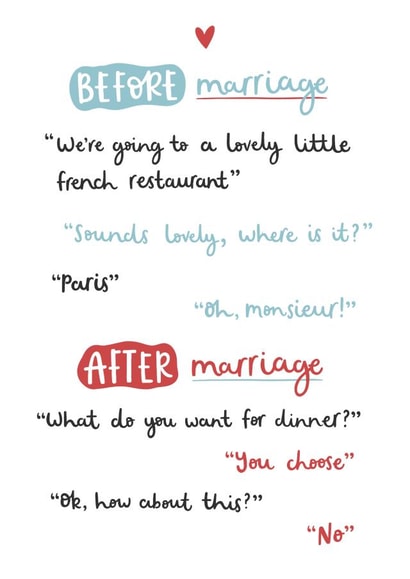 BEFORE marriage
“We're going to a lovely little
french restaurant”
“Sounds lovely, where is it?”
“Paris”
“Oh, monsieur!”
AFTER marriage
“What do you want for dinner?”
“You choose”
“Ok, how about this?”
“No”